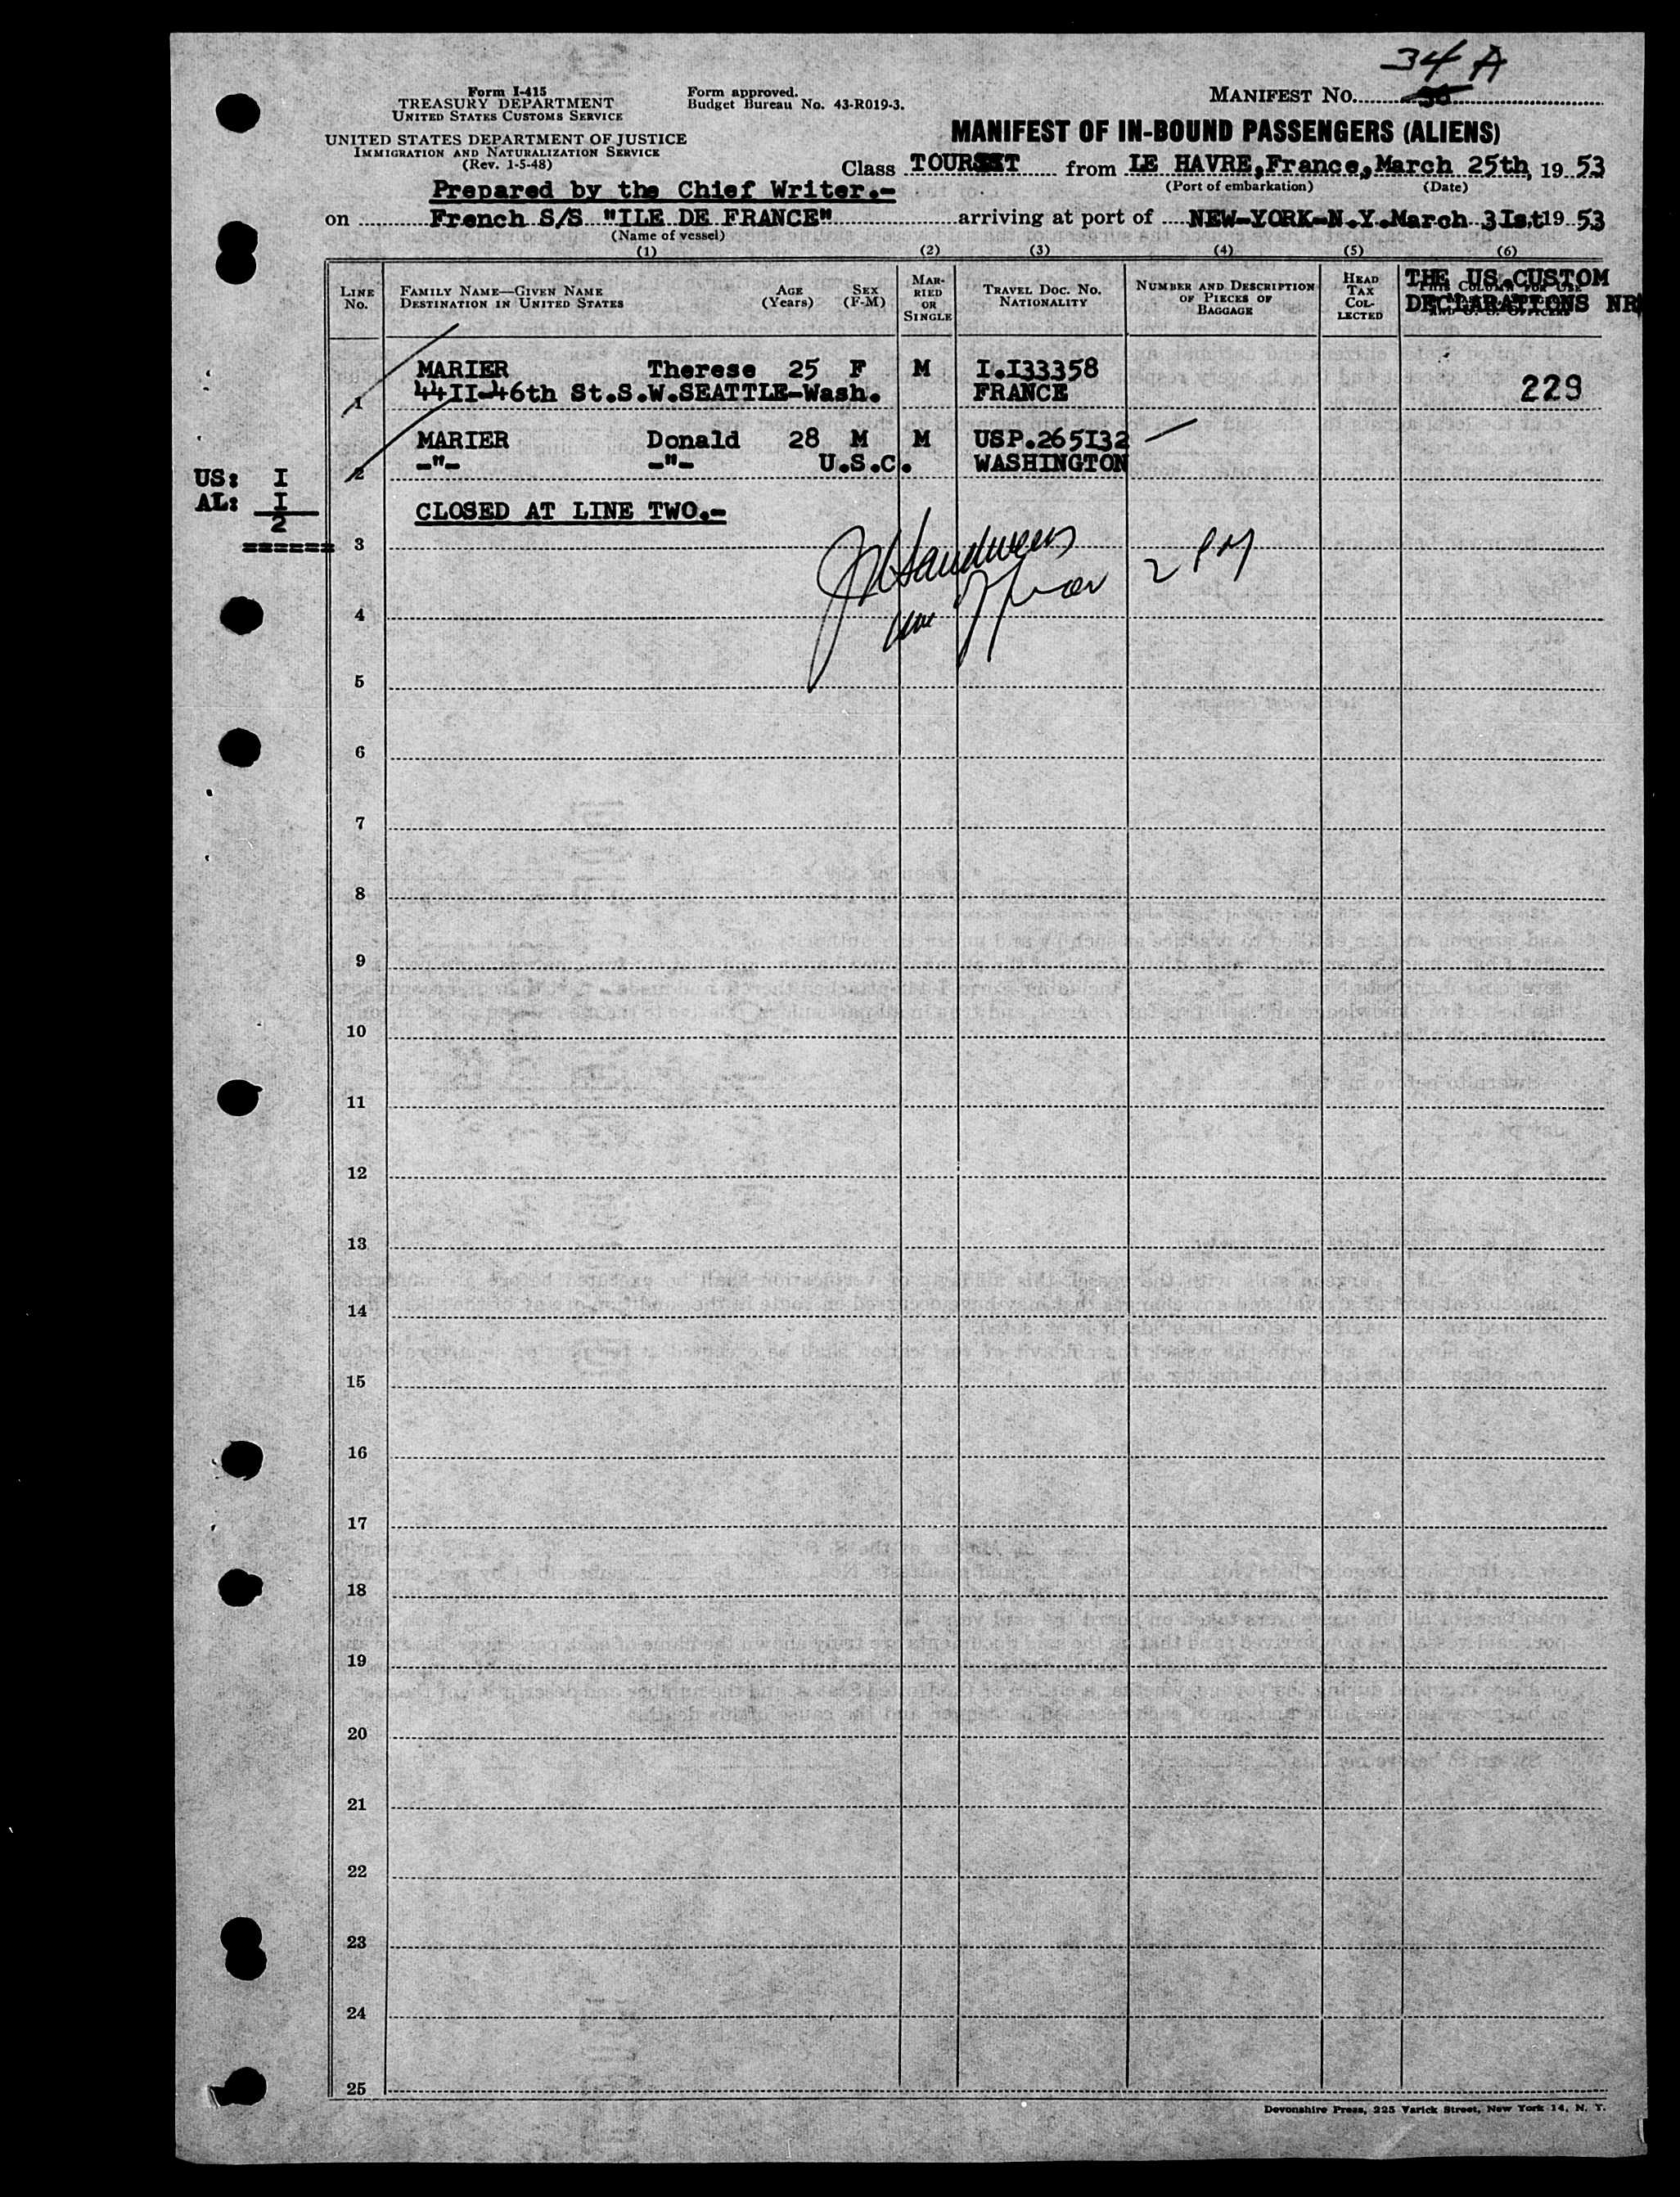 34 A
Form I-415
TREASURY DEPARTMENT
UNITED STATES CUSTOMS SERVICE
Form approved.
Budget Bureau No. 43-R019-3.
MANIFEST NO.
UNITED STATES DEPARTMENT OF JUSTICE
IMMIGRATION AND NATURALIZATION SERVICE
(Rev. 1-5-48)
MANIFEST OF IN-BOUND PASSENGERS (ALIENS)
Class TOURIST from LE HAVRE,France,March 25th, 19 53
(Port of embarkation) (Date)
Prepared by the Chief Writer.-
on French S/S "ILE DE FRANCE" arriving at port of NEW-YORK-N.Y.March 3Ist 19 53
(Name of vessel)
(1) (2) (3) (4) (5) (6)
LINE No. FAMILY NAME—GIVEN NAME DESTINATION IN UNITED STATES AGE (Years) SEX (F-M) MARRIED OR SINGLE TRAVEL DOC. NO. NATIONALITY NUMBER AND DESCRIPTION OF PIECES OF BAGGAGE HEAD TAX COLLECTED THE US.CUSTOM DECLARATIONS NR
MARIER Therese 25 F M I.I33358
1 44II-46th St.S.W.SEATTLE-Wash. FRANCE 229
MARIER Donald 28 M M USP.265I32
2 -"- -"- U.S.C. WASHINGTON
US: I
AL: I
2
======
CLOSED AT LINE TWO.-
3
2 PM
4
5
6
7
8
9
10
11
12
13
14
15
16
17
18
19
20
21
22
23
24
25
Devonshire Press, 225 Varick Street, New York 14, N. Y.